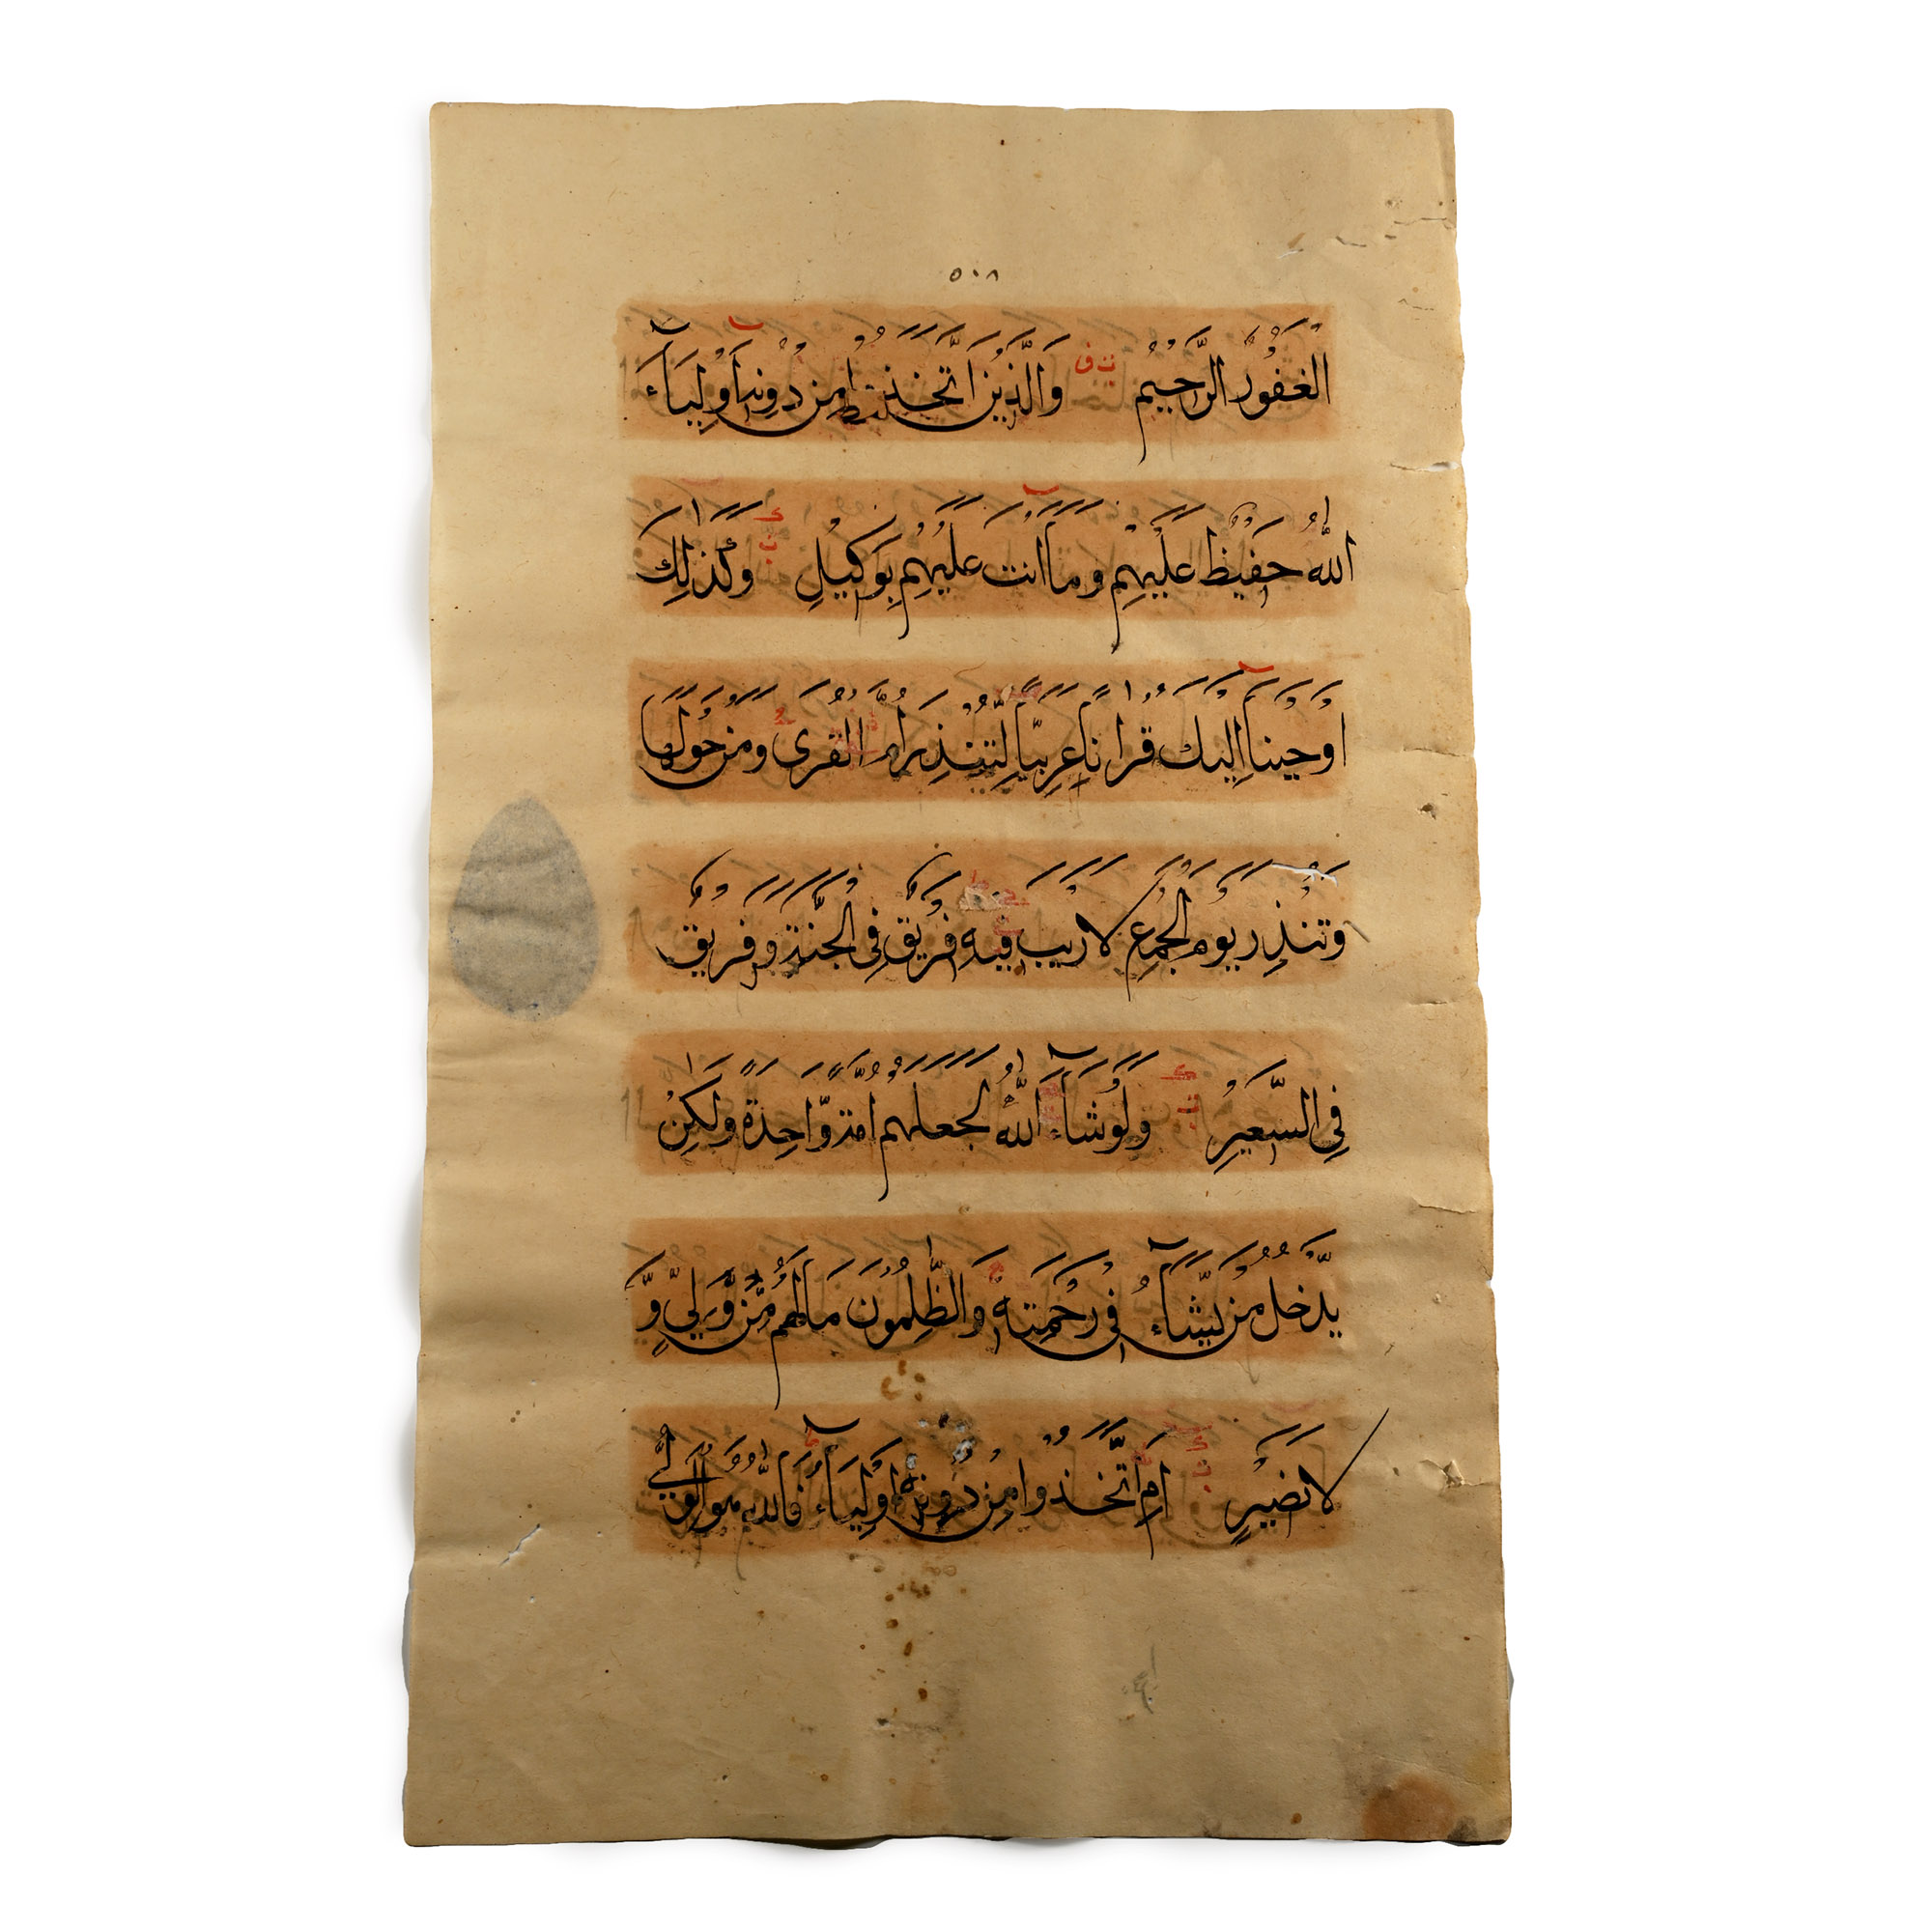 ٥٠٨
الغَفُورُ الرَّحِيمُ وَالَّذِينَ اتَّخَذُوا مِن دُونِهِ أَوْلِيَاءَ
اللّٰهُ حَفِيظٌ عَلَيْهِمْ وَمَا أَنتَ عَلَيْهِم بِوَكِيلٍ وَكَذٰلِكَ
أَوْحَيْنَا إِلَيْكَ قُرْاٰنًا عَرَبِيًّا لِّتُنْذِرَ أُمَّ الْقُرَى وَمَنْ حَوْلَهَا
وَتُنْذِرَ يَوْمَ الْجَمْعِ لَا رَيْبَ فِيهِ فَرِيقٌ فِي الْجَنَّةِ وَفَرِيقٌ
فِي السَّعِيرِ وَلَوْ شَآءَ اللّٰهُ لَجَعَلَهُمْ أُمَّةً وَّاحِدَةً وَلٰكِنْ
يُّدْخِلُ مَنْ يَّشَآءُ فِي رَحْمَتِهِ وَالظّٰلِمُونَ مَا لَهُمْ مِّنْ وَّلِيٍّ وَّ
لَا نَصِيرٍ أَمِ اتَّخَذُوا مِنْ دُونِهِ أَوْلِيَآءَ فَاللّٰهُ هُوَ الْوَلِيُّ